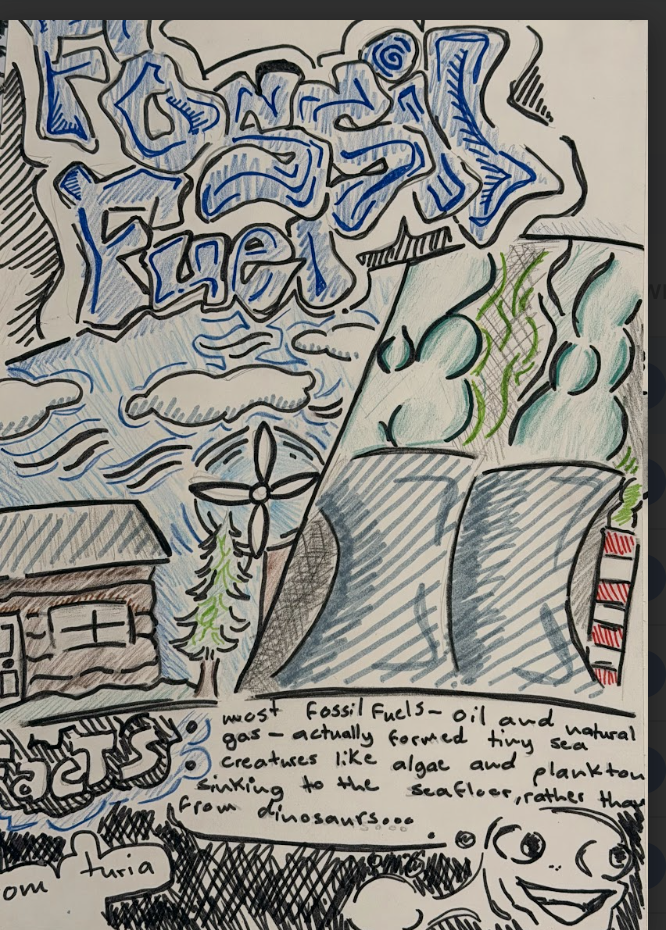 Fossil
Fuel
FACTS
most Fossil Fuels- oil and natural
gas - actually formed tiny sea
creatures like algae and plankton
sinking to the seafloor, rather than
From dinosaurs...
turia
om